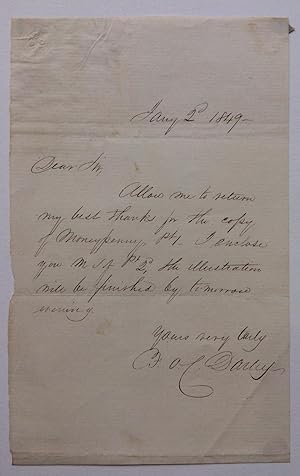 Jany 2d 1849-
Dear Sir,
Allow me to return
my best thanks for the copy
of Moneypenny, pt 1. I enclose
you M.S. of Pt 2, the illustration
will be finished by to morrow
evening.
Yours very truly
F. O. C. Darley